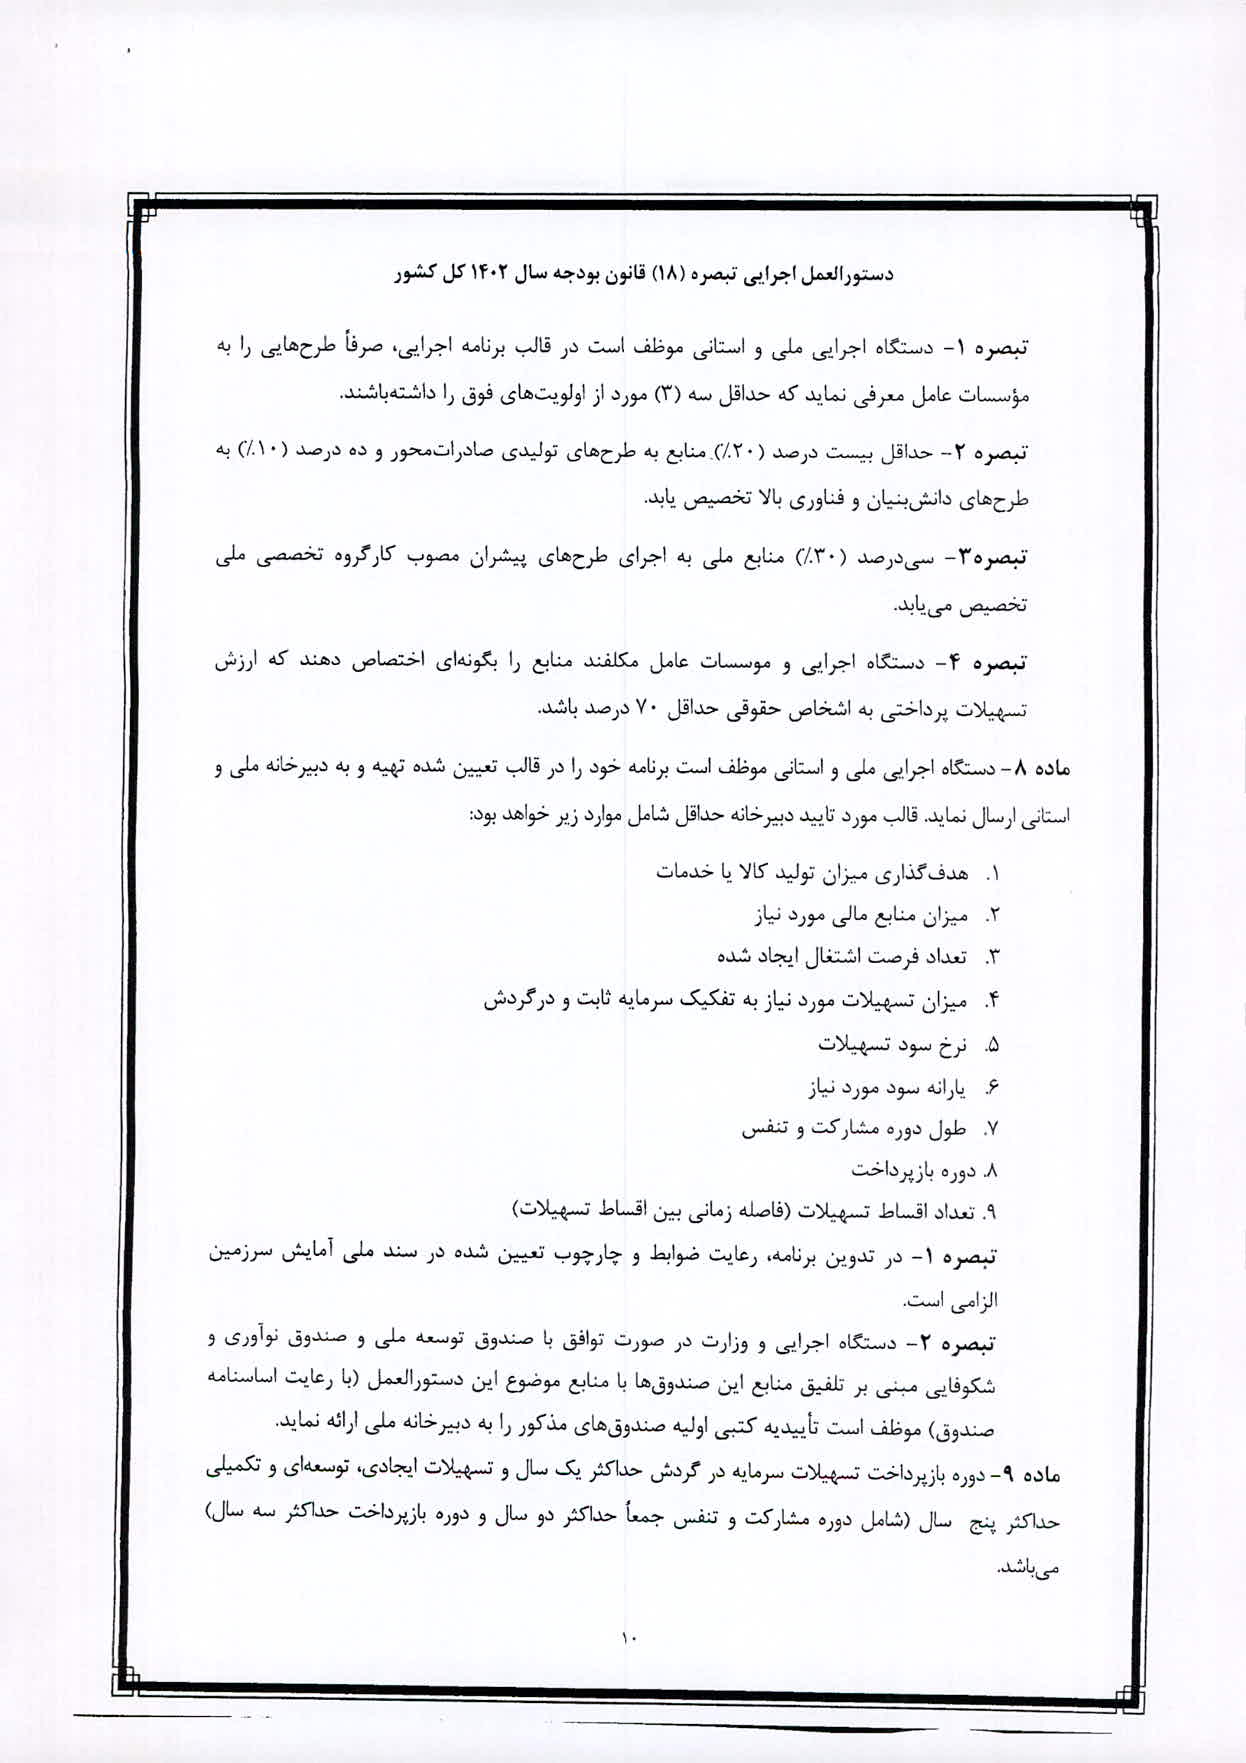 دستورالعمل اجرایی تبصره (۱۸) قانون بودجه سال ۱۴۰۲ کل کشور
تبصره ۱- دستگاه اجرایی ملی و استانی موظف است در قالب برنامه اجرایی، صرفاً طرح‌هایی را به
مؤسسات عامل معرفی نماید که حداقل سه (۳) مورد از اولویت‌های فوق را داشته‌باشند.
تبصره ۲- حداقل بیست درصد (۲۰٪) منابع به طرح‌های تولیدی صادرات‌محور و ده درصد (۱۰٪) به
طرح‌های دانش‌بنیان و فناوری بالا تخصیص یابد.
تبصره۳- سی‌درصد (۳۰٪) منابع ملی به اجرای طرح‌های پیشران مصوب کارگروه تخصصی ملی
تخصیص می‌یابد.
تبصره ۴- دستگاه اجرایی و موسسات عامل مکلفند منابع را بگونه‌ای اختصاص دهند که ارزش
تسهیلات پرداختی به اشخاص حقوقی حداقل ۷۰ درصد باشد.
ماده ۸- دستگاه اجرایی ملی و استانی موظف است برنامه خود را در قالب تعیین شده تهیه و به دبیرخانه ملی و
استانی ارسال نماید. قالب مورد تایید دبیرخانه حداقل شامل موارد زیر خواهد بود:
۱. هدف‌گذاری میزان تولید کالا یا خدمات
۲. میزان منابع مالی مورد نیاز
۳. تعداد فرصت اشتغال ایجاد شده
۴. میزان تسهیلات مورد نیاز به تفکیک سرمایه ثابت و درگردش
۵. نرخ سود تسهیلات
۶. یارانه سود مورد نیاز
۷. طول دوره مشارکت و تنفس
۸. دوره بازپرداخت
۹. تعداد اقساط تسهیلات (فاصله زمانی بین اقساط تسهیلات)
تبصره ۱- در تدوین برنامه، رعایت ضوابط و چارچوب تعیین شده در سند ملی آمایش سرزمین
الزامی است.
تبصره ۲- دستگاه اجرایی و وزارت در صورت توافق با صندوق توسعه ملی و صندوق نوآوری و
شکوفایی مبنی بر تلفیق منابع این صندوق‌ها با منابع موضوع این دستورالعمل (با رعایت اساسنامه
صندوق) موظف است تأییدیه کتبی اولیه صندوق‌های مذکور را به دبیرخانه ملی ارائه نماید.
ماده ۹- دوره بازپرداخت تسهیلات سرمایه در گردش حداکثر یک سال و تسهیلات ایجادی، توسعه‌ای و تکمیلی
حداکثر پنج سال (شامل دوره مشارکت و تنفس جمعاً حداکثر دو سال و دوره بازپرداخت حداکثر سه سال)
می‌باشد.
۱۰